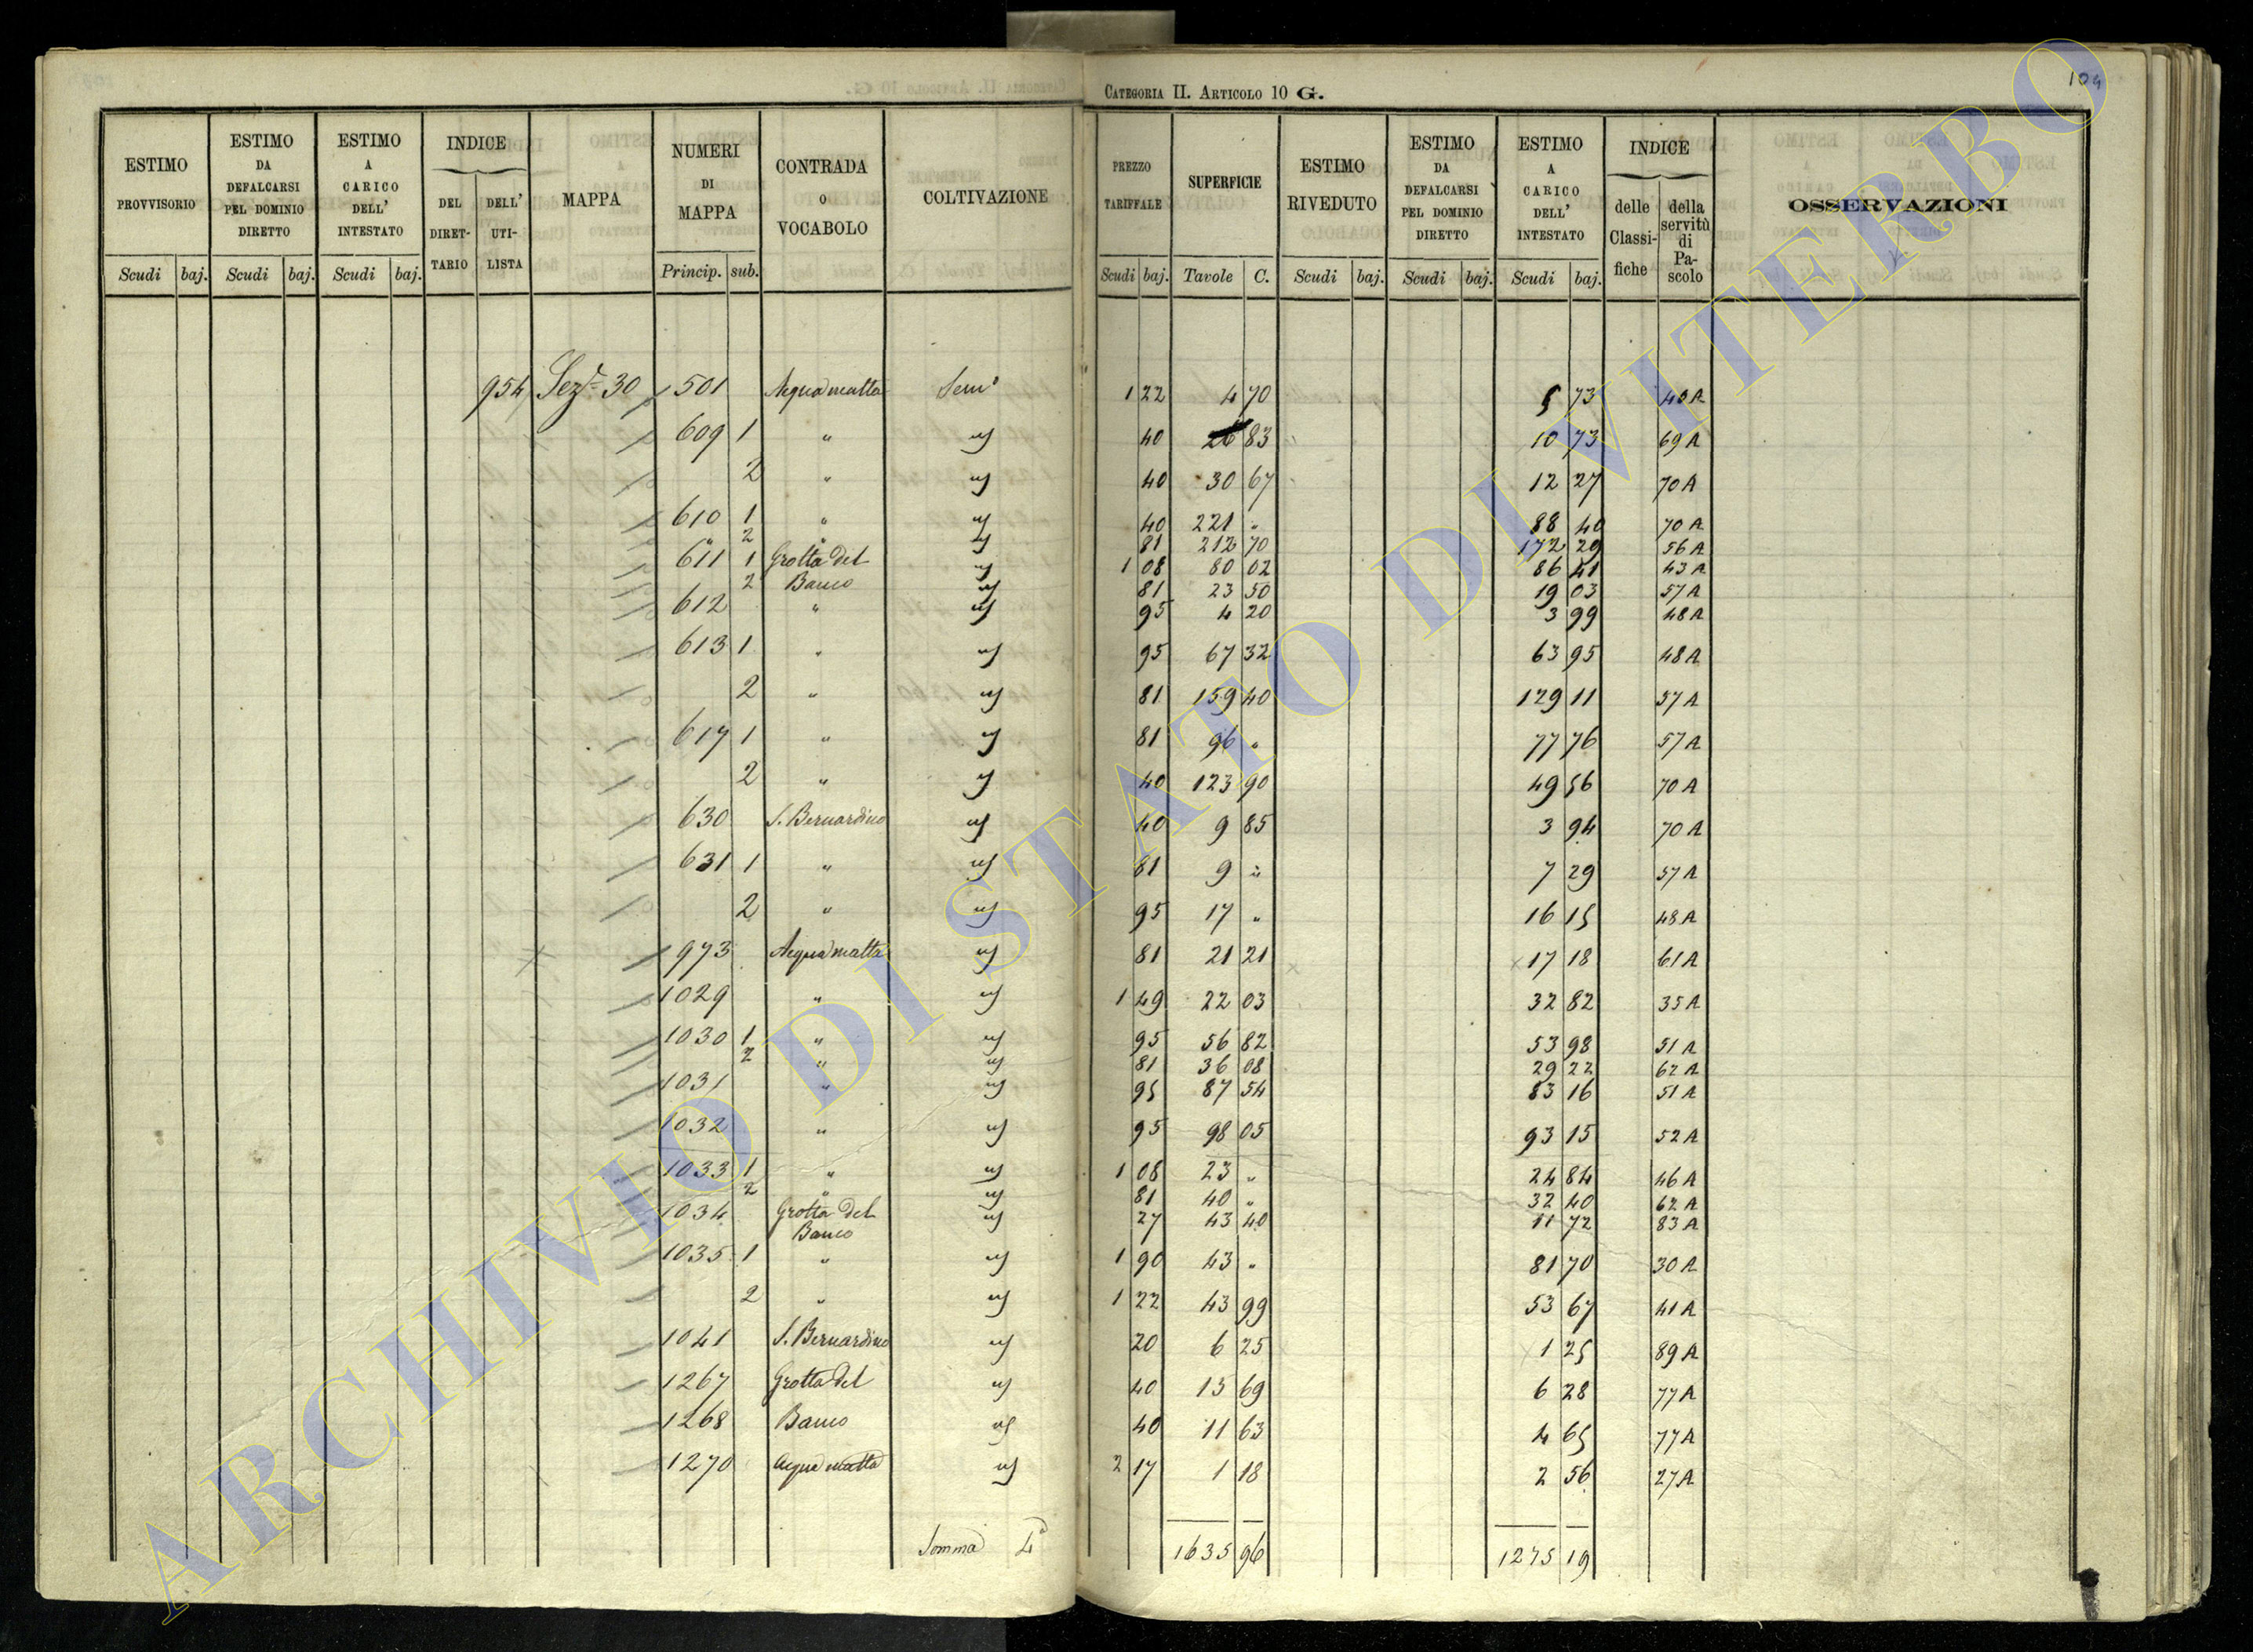 CATEGORIA II. ARTICOLO 10 G.
104
ESTIMO PROVVISORIO
ESTIMO DA DEFALCARSI PEL DOMINIO DIRETTO
ESTIMO A CARICO DELL' INTESTATO
INDICE
DEL DIRETTARIO
DELL' UTILISTA
MAPPA
NUMERI DI MAPPA
CONTRADA O VOCABOLO
COLTIVAZIONE
PREZZO TARIFFALE
SUPERFICIE
ESTIMO RIVEDUTO
ESTIMO DA DEFALCARSI PEL DOMINIO DIRETTO
ESTIMO A CARICO DELL' INTESTATO
INDICE
delle Classifiche
della servitù di Pascolo
OSSERVAZIONI
Scudi baj. Scudi baj. Scudi baj. Princip. sub. Scudi baj. Tavole C. Scudi baj. Scudi baj. Scudi baj.
954 Sez.e 30 501 Acqua matta Sem.o 1 22 4 70 5 73 40 A
609 1 " id 40 26 83 10 73 69 A
2 " id 40 30 67 12 27 70 A
610 1 " id 40 221 " 88 40 70 A
" 2 " id 81 212 70 172 29 56 A
611 1 Grotta del id 1 08 80 02 86 41 43 A
2 Banco id 81 23 50 19 03 57 A
612 " id 95 4 20 3 99 48 A
613 1 " id 95 67 32 63 95 48 A
2 " id 81 159 40 129 11 57 A
617 1 " id 81 96 " 77 76 57 A
2 " id 40 123 90 49 56 70 A
630 S. Bernardino id 40 9 85 3 94 70 A
631 1 " id 81 9 " 7 29 57 A
2 " id 95 17 " 16 15 48 A
973 Acqua matta id 81 21 21 17 18 61 A
1029 " id 1 49 22 03 32 82 35 A
1030 1 " id 95 56 82 53 98 51 A
2 " id 81 36 08 29 22 62 A
1031 " id 95 87 54 83 16 51 A
1032 " id 95 98 05 93 15 52 A
1033 1 " id 1 08 23 " 24 84 46 A
2 " id 81 40 " 32 40 62 A
1034 Grotta del id 27 43 40 11 72 83 A
Banco
1035 1 " id 1 90 43 " 81 70 30 A
2 " id 1 22 43 99 53 67 41 A
1041 S. Bernardino id 20 6 25 1 25 89 A
1267 Grotta del id 40 15 69 6 28 77 A
1268 Banco id 40 11 63 4 65 77 A
1270 Acqua matta id 2 17 1 18 2 56 27 A
Somma 1635 96 1275 19
ARCHIVIO DI STATO DI VITERBO